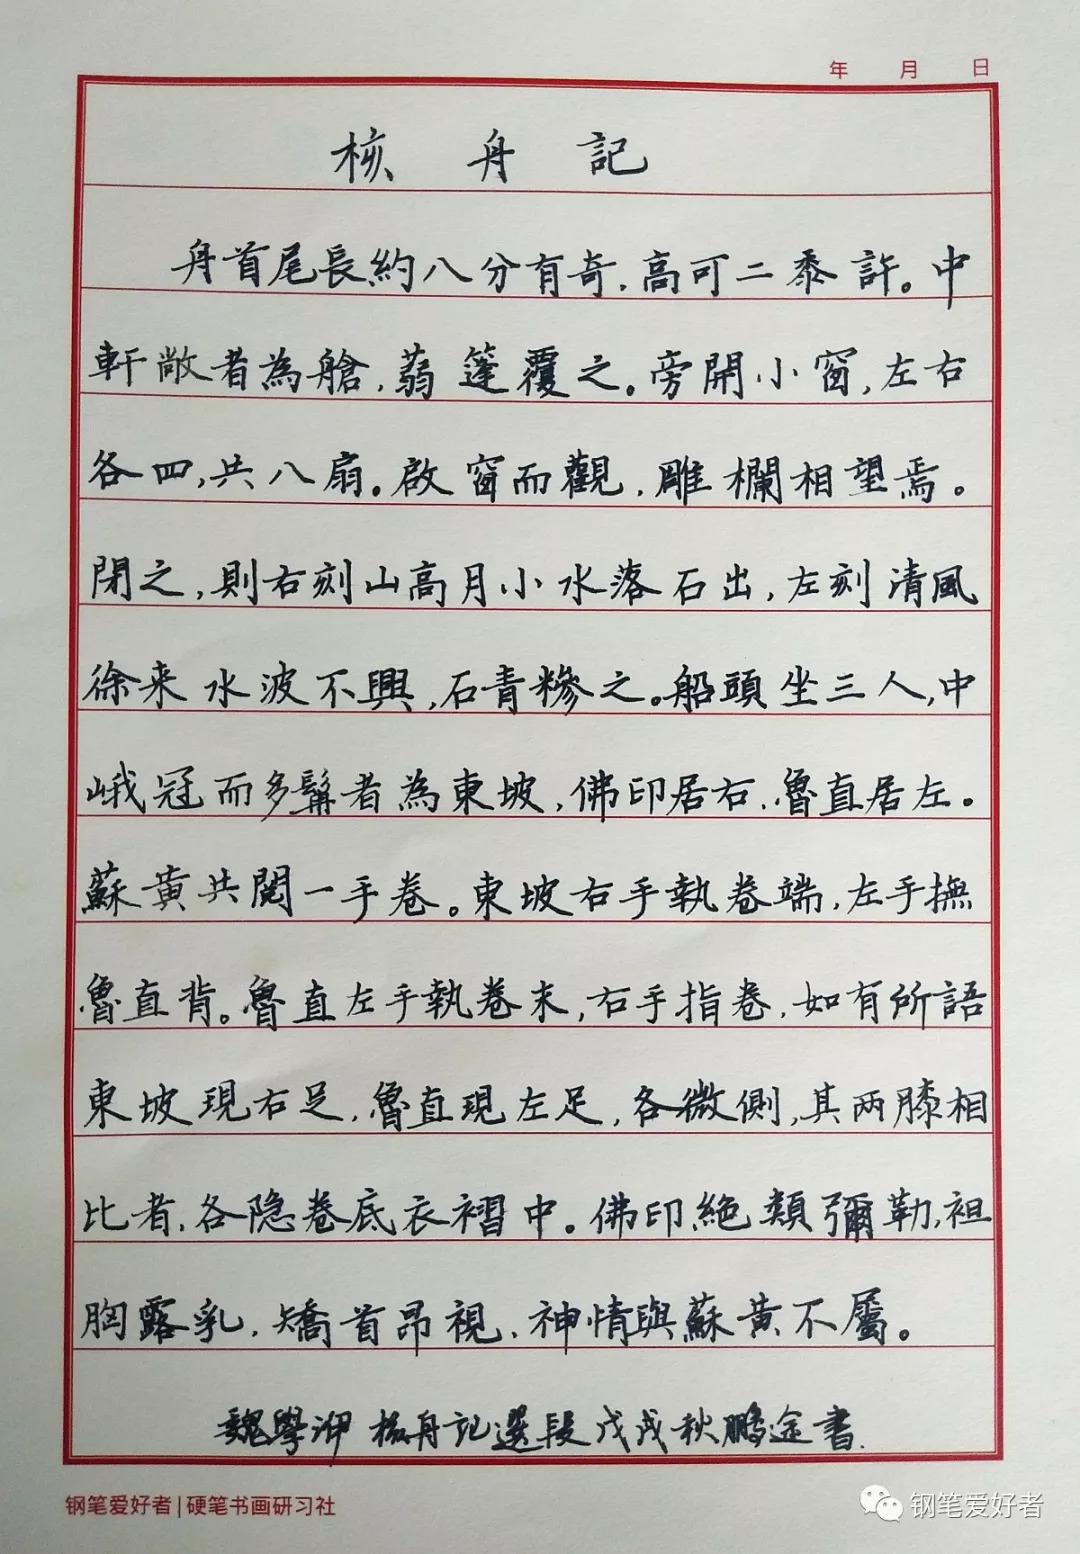 年 月 日
核舟記
舟首尾長約八分有奇，高可二黍許。中
軒敞者為艙，蒻篷覆之。旁開小窗，左右
各四，共八扇。啟窗而觀，雕欄相望焉。
閉之，則右刻山高月小水落石出，左刻清風
徐来水波不興，石青糝之。船頭坐三人，中
峨冠而多髯者為東坡，佛印居右，魯直居左。
蘇黃共閱一手卷。東坡右手執卷端，左手撫
魯直背。魯直左手執卷末，右手指卷，如有所語
東坡現右足，魯直現左足，各微側，其两膝相
比者，各隐卷底衣褶中。佛印絕類彌勒，袒
胸露乳，矯首昂視，神情與蘇黃不屬。
魏學洢核舟記選段戊戌秋鹏途書
钢笔爱好者|硬笔书画研习社
钢笔爱好者